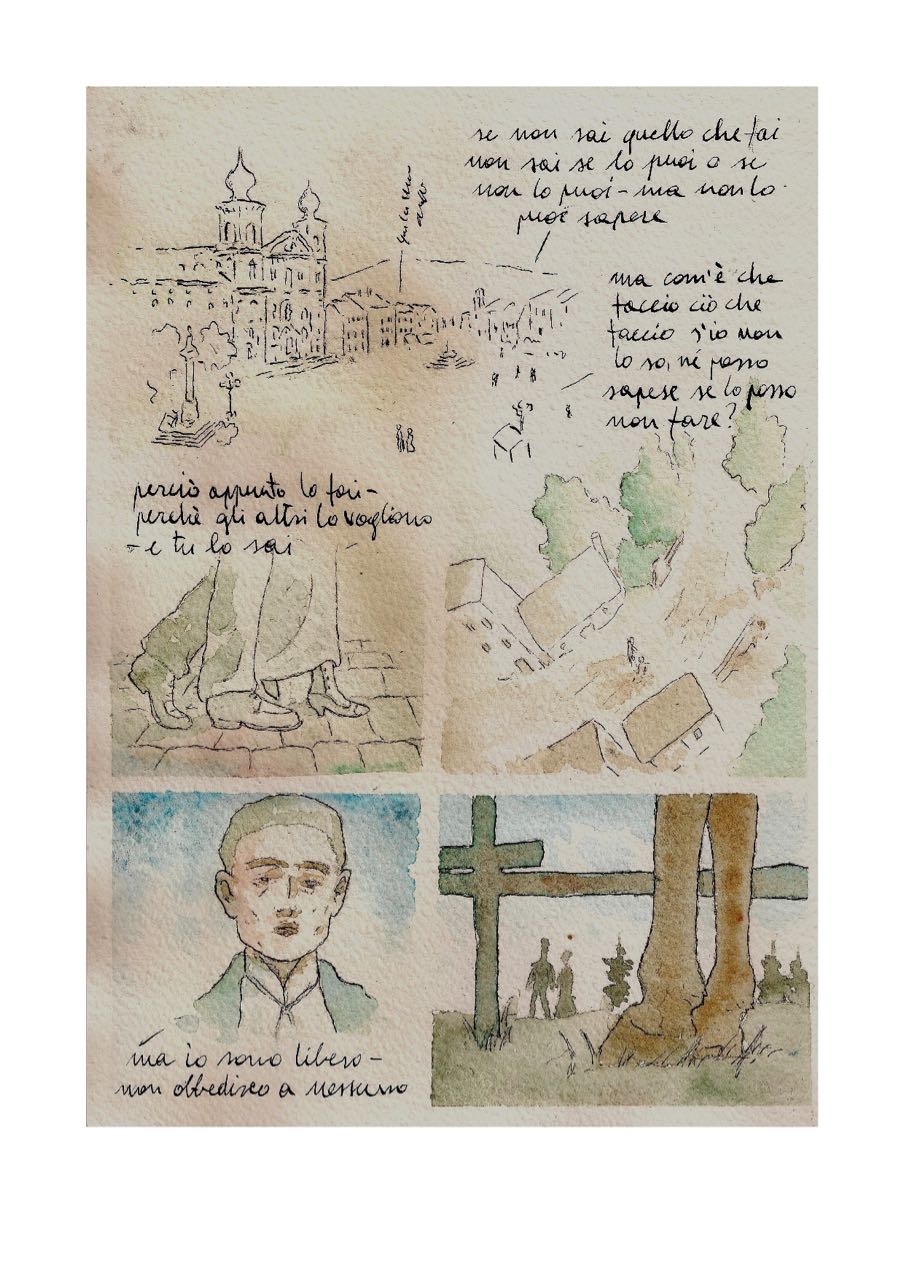 se non sai quello che fai
non sai se lo puoi o se
non lo puoi - ma non lo
puoi sapere
ma com'è che
faccio ciò che
faccio s'io non
lo so, né posso
sapere se lo posso
non fare?
perciò appunto lo fai -
perché gli altri lo vogliono
- e tu lo sai
ma io sono libero -
non obbedisco a nessuno